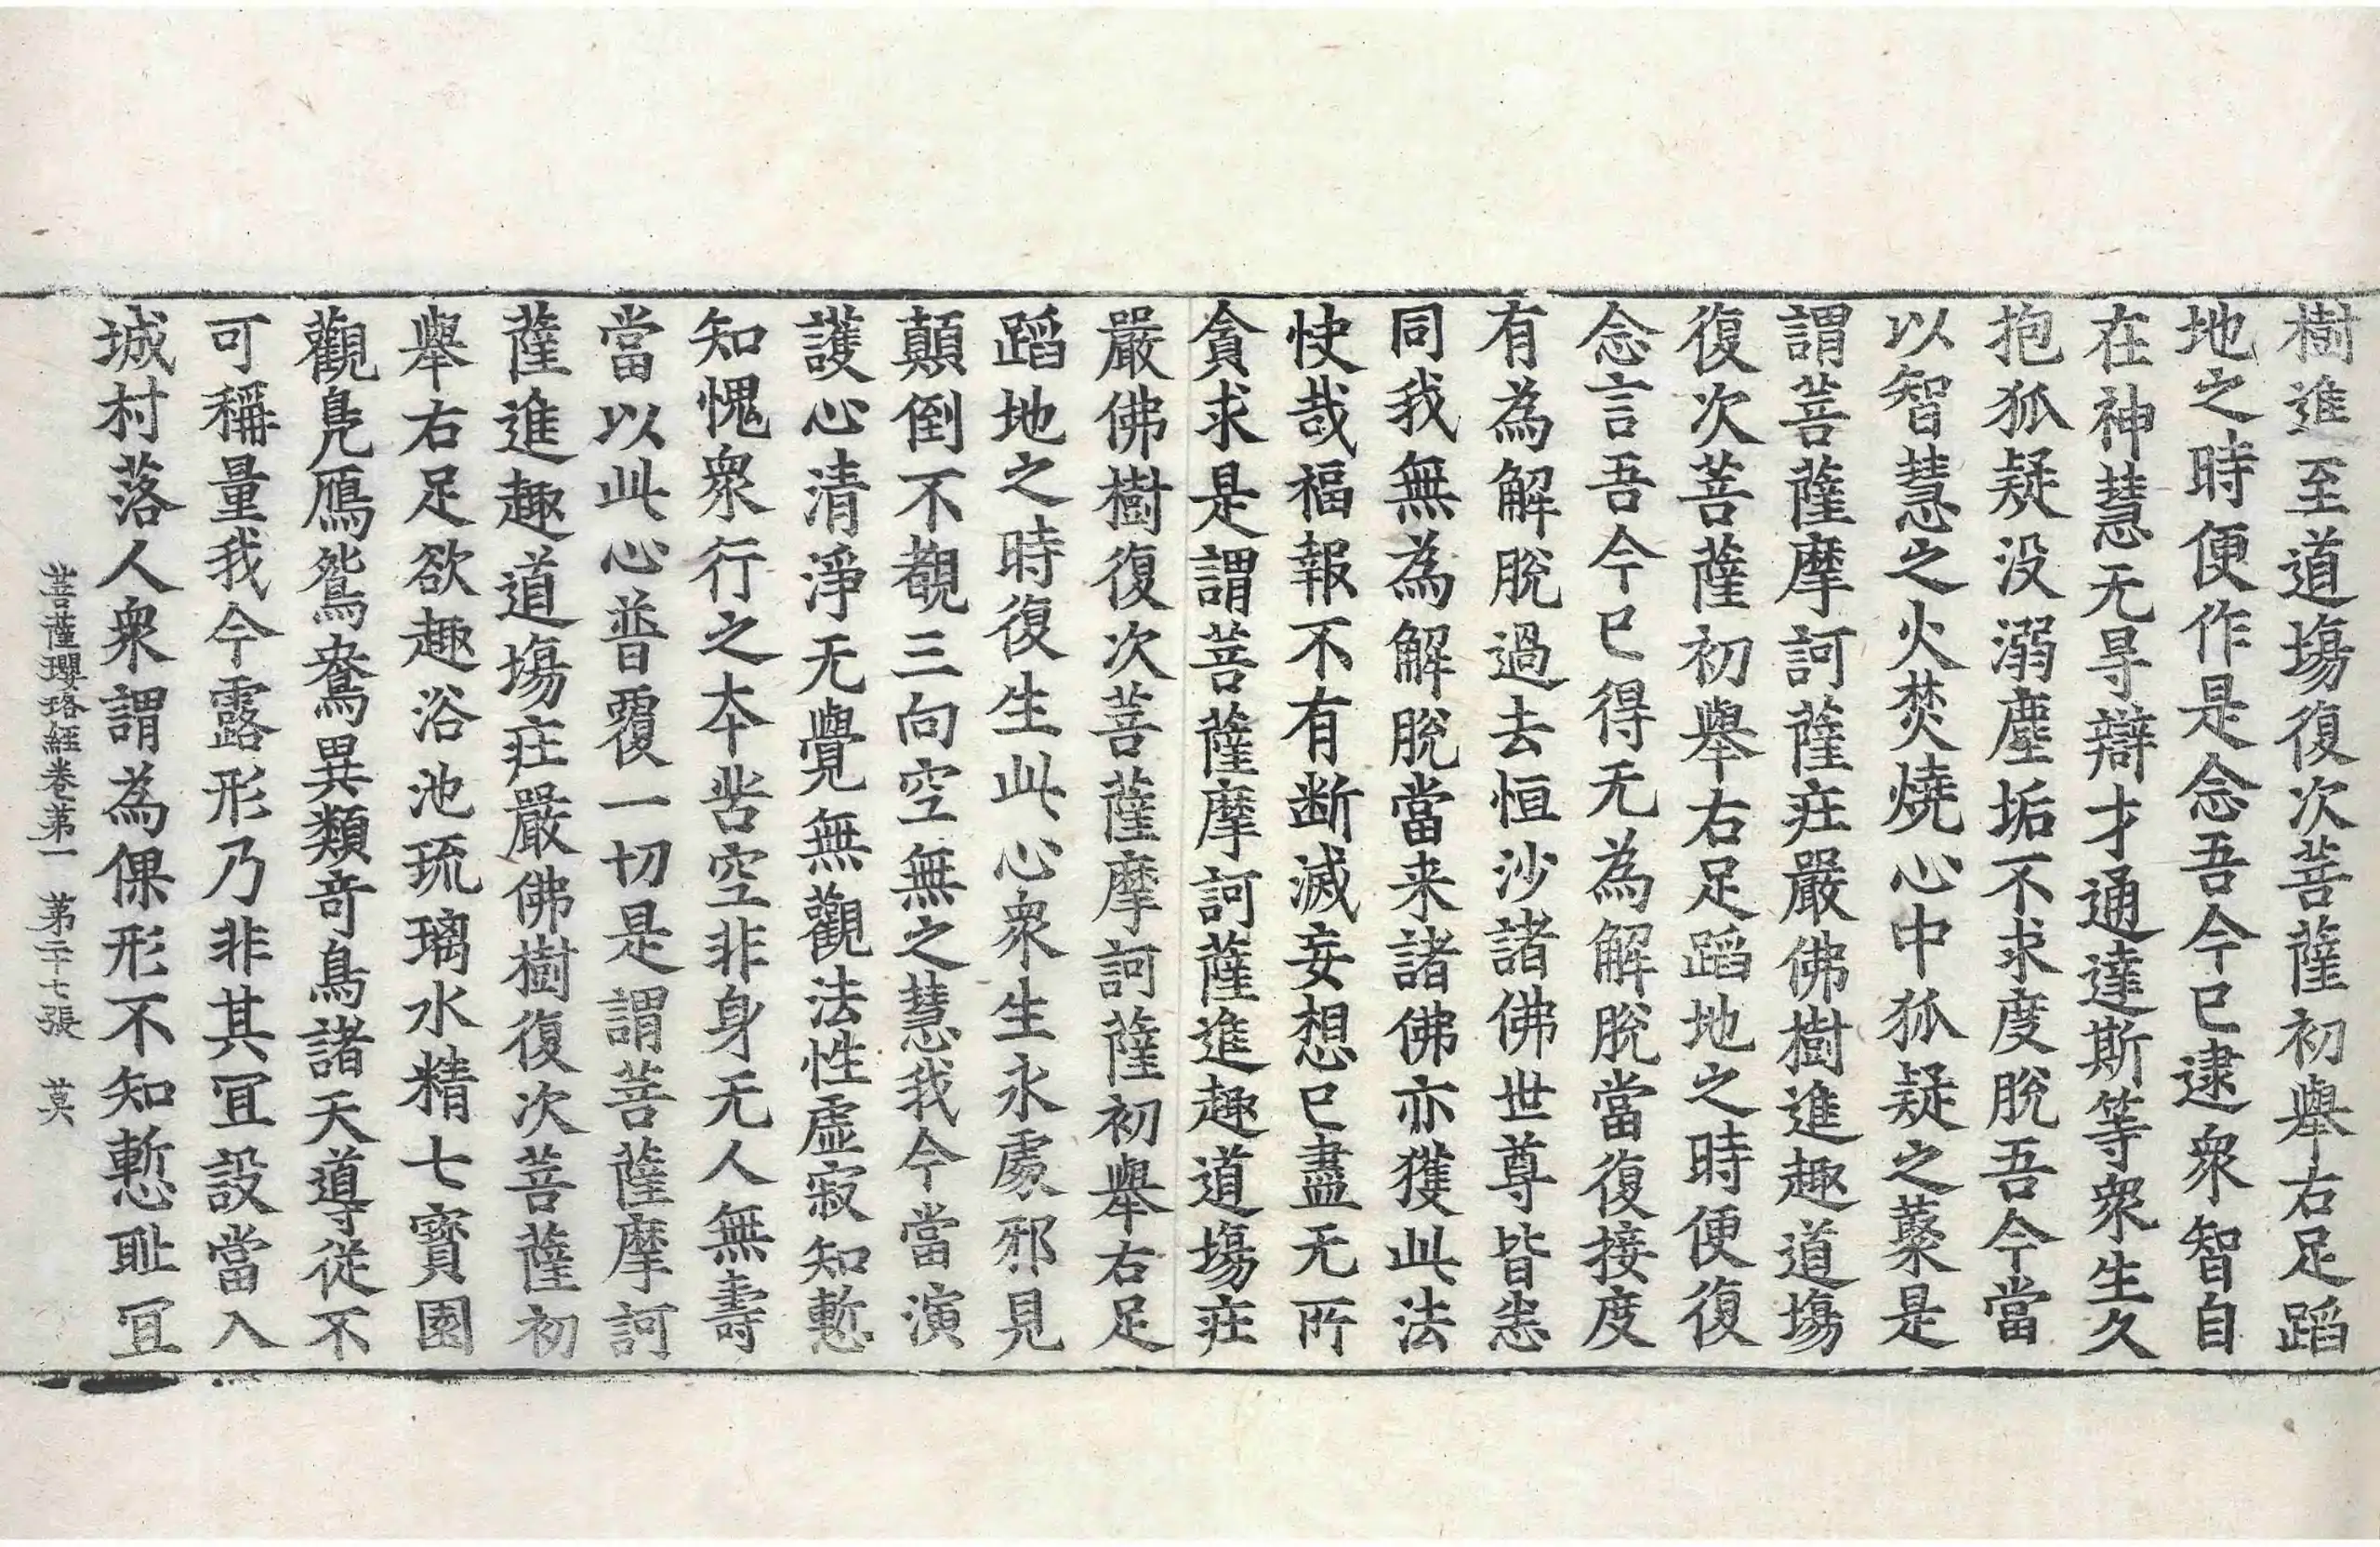 樹進至道場復次菩薩初舉右足蹈
地之時便作是念吾今已逮衆智自
在神慧无㝵辯才通達斯等衆生久
抱狐疑没溺塵垢不求度脫吾今當
以智慧之火焚燒心中狐疑之藂是
謂菩薩摩訶薩莊嚴佛樹進趣道場
復次菩薩初舉右足蹈地之時便復
念言吾今已得无為解脫當復接度
有為解脫過去恒沙諸佛世尊皆悉
同我無為解脫當来諸佛亦獲此法
快哉福報不有断滅妄想已盡无所
貪求是謂菩薩摩訶薩進趣道場莊
嚴佛樹復次菩薩摩訶薩初舉右足
蹈地之時復生此心衆生永處邪見
顛倒不覩三向空無之慧我今當演
護心清淨无覺無觀法性虛寂知慙
知愧衆行之本苦空非身无人無壽
當以此心普覆一切是謂菩薩摩訶
薩進趣道場莊嚴佛樹復次菩薩初
舉右足欲趣浴池琉璃水精七寶園
觀鳧鴈鴛鴦異類奇鳥諸天導從不
可稱量我今露形乃非其冝設當入
城村落人衆謂為倮形不知慙耻冝
菩薩瓔珞經卷第一 第二十七張 莫